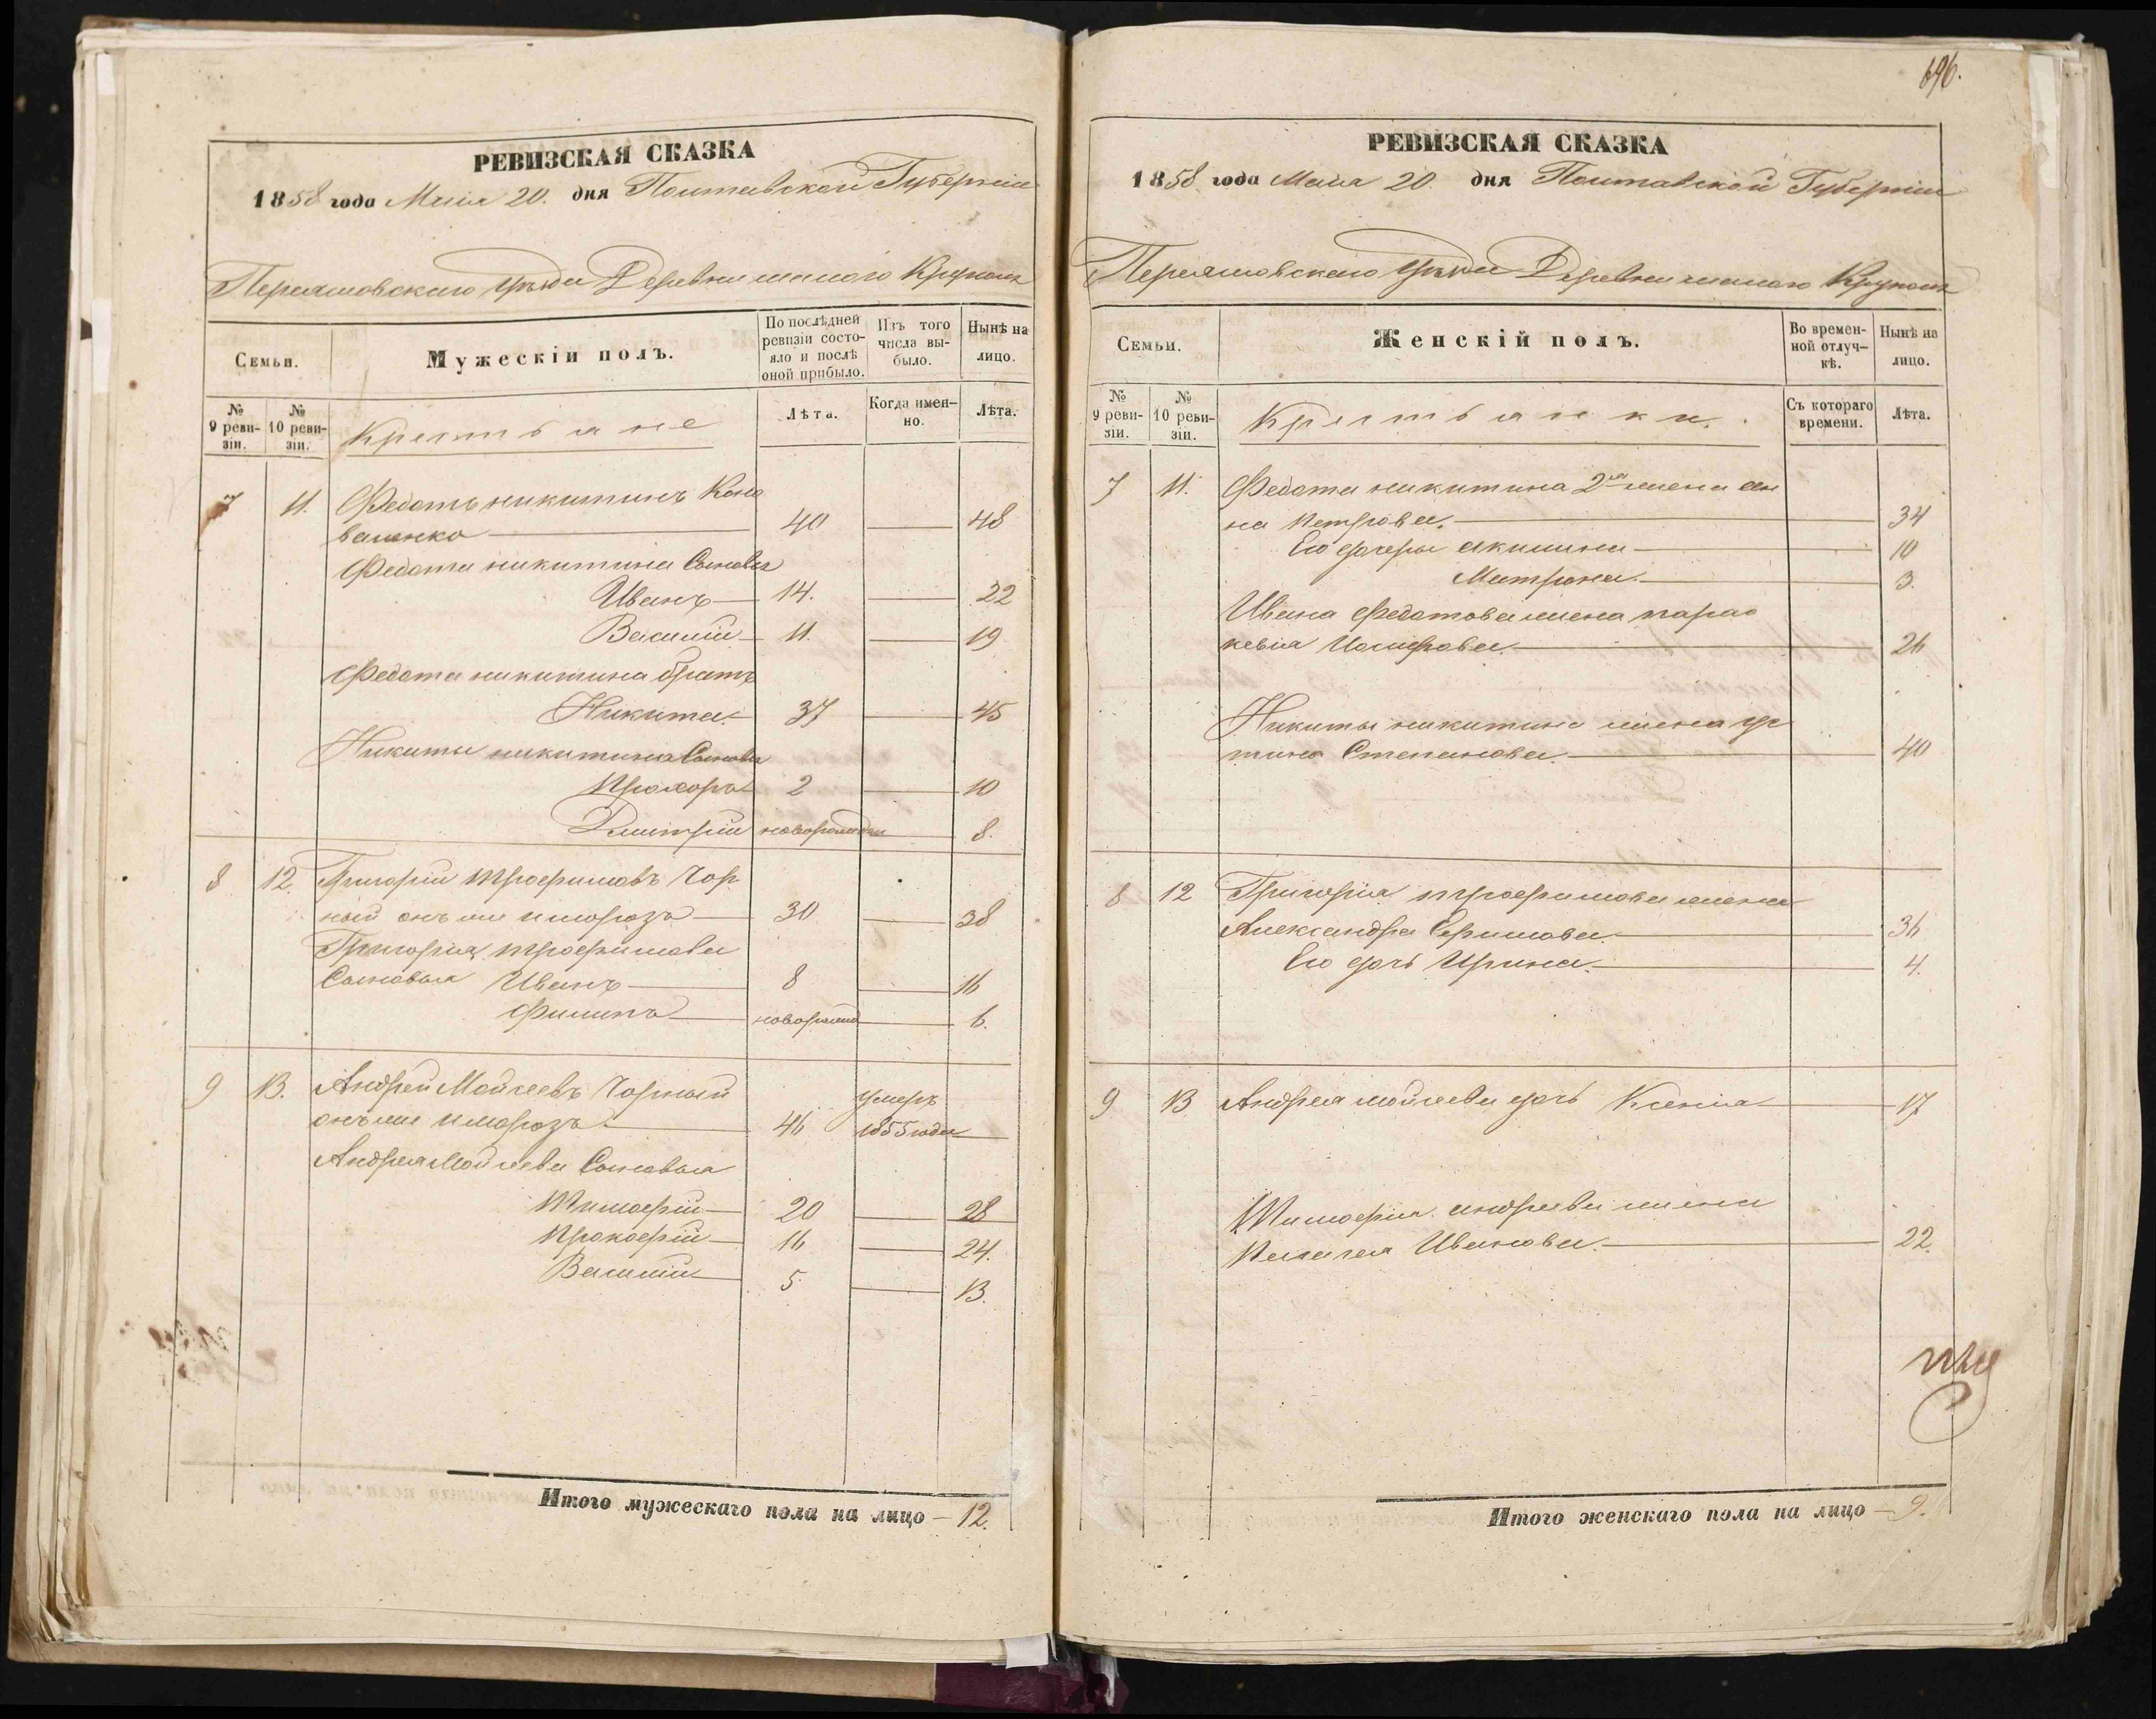 РЕВИЗСКАЯ СКАЗКА
1858 года Маія 20. дня Полтавской Губерніи
Переяславскаго уѣзда Деревни малаго Круполя
Семьи.
Мужескій полъ.
По послѣдней ревизіи состояло и послѣ оной прибыло.
Изъ того числа выбыло.
Нынѣ на лицо.
№ 9 ревизіи.
№ 10 ревизіи.
Крестьяне
Лѣта.
Когда именно.
Лѣта.
7 11. Федотъ никитинъ Коно
валенко 40 48
Федота никитина Сыновья
Иванъ 14. 22
Василій 11. 19
Федота никитина братъ
Никита 37 45
Никиты никитина Сыновья
Прохоръ 2 10
Дмитрій новорожден 8.
8 12. Григорій трофимовъ Чор
ный онъ же и морозъ 30 38
Григорія трофимова
Сыновья Иванъ 8 16
Филипъ новорожд 6.
9 13. Андрей Мойсеевъ Чорный умеръ
онъ же и морозъ 46 1855 года
Андрея Мойсеева Сыновья
Тимофій 20 28
Прокофій 16 24.
Василій 5. 13.
Итого мужескаго пола на лицо — 12.
696.
РЕВИЗСКАЯ СКАЗКА
1858 года Маія 20. дня Полтавской Губерніи
Переяславскаго уѣзда Деревни малаго Круполя
Семьи.
Женскій полъ.
Во временной отлучкѣ.
Нынѣ на лицо.
№ 9 ревизіи.
№ 10 ревизіи.
Крестьянки.
Съ котораго времени.
Лѣта.
7 11. Федота никитина 2я жена ан
на петрова. 34
Его дочери акилина 10
Матрона. 3.
Ивана Федотова жена парас
кевія Иосифова. 26
Никиты никитина жена ус
тина Степанова. 40
8 12 Григорія трофимова жена
Александра Ефимова. 36
Его дочь Ирина. 4.
9 13 Андрея мойсеева дочь Ксенія 17
Тимофія андреева жена
Пелагея Иванова. 22.
Итого женскаго пола на лицо — 9.